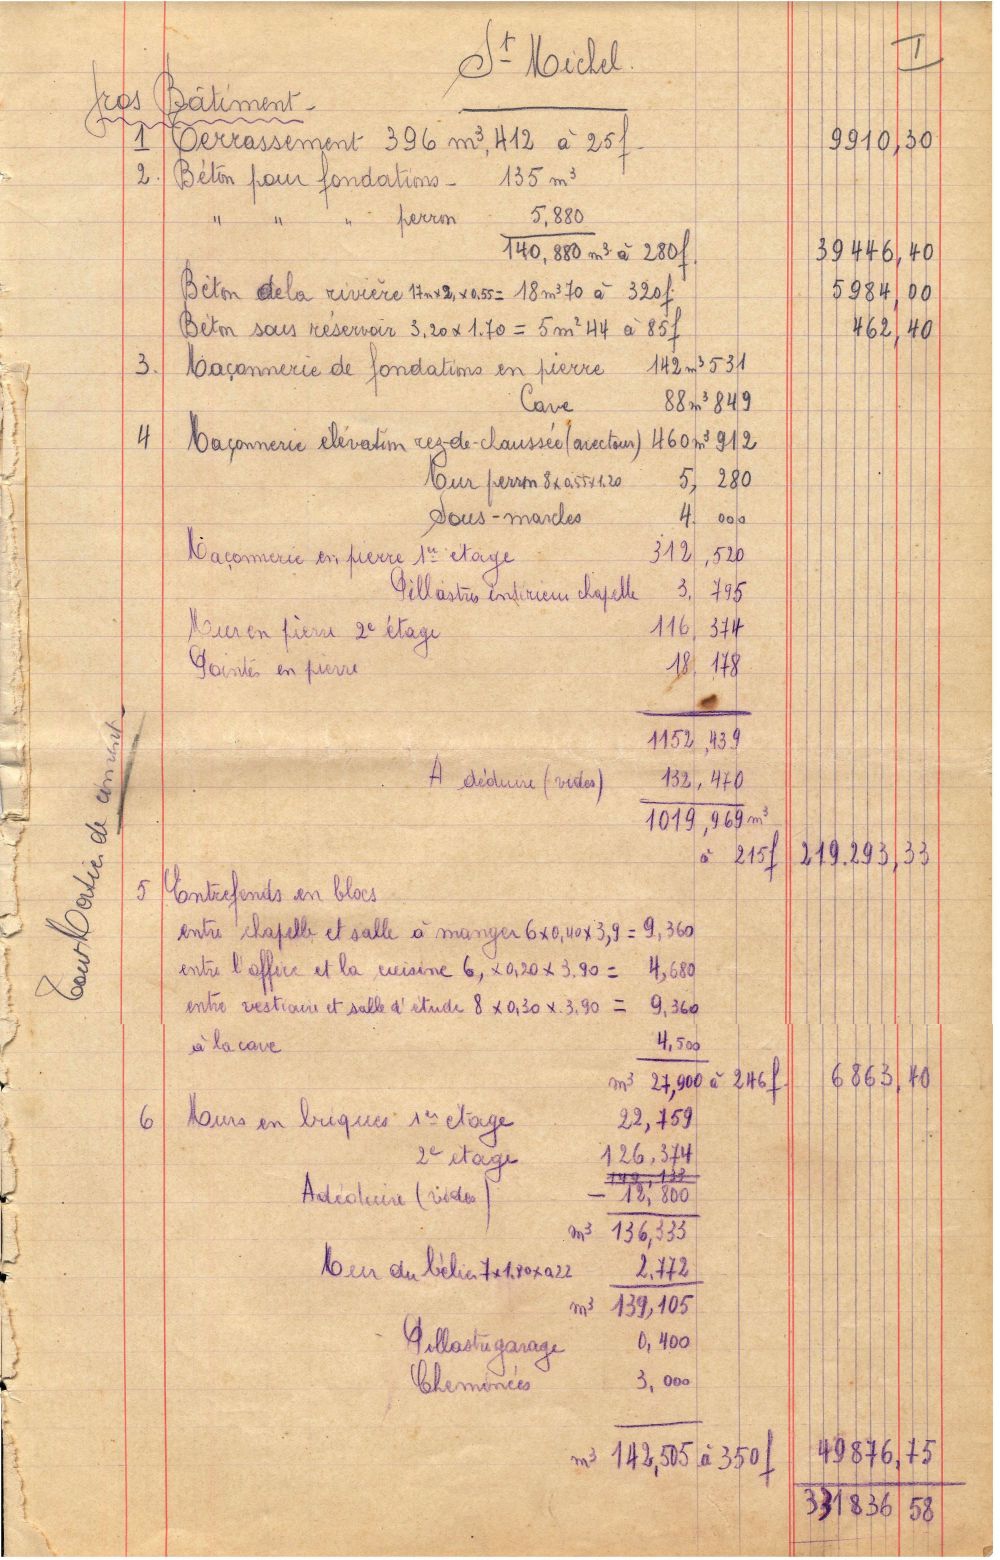 St Michel.
I
Gros Bâtiment -
1 Terrassement 396 m³,412 à 25f 9910,30
2. Béton pour fondations - 135 m³
" " " perron 5,880
140,880 m³ à 280f. 39446,40
Béton de la rivière 17m×2,×0.55= 18m³70 à 320f 5984,00
Béton sous réservoir 3,20×1.70 = 5m²44 à 85f 462,40
3. Maçonnerie de fondations en pierre 142m³531
Cave 88m³849
4 Maçonnerie élévation rez-de-chaussée (avec tour) 460m³912
Mur perron 8×0,55×1.20 5, 280
Sous-marches 4. 000
Maçonnerie en pierre 1er étage 312,520
Pillastres intérieur chapelle 3, 795
Murs en pierre 2e étage 116,374
Pointes en pierre 18,178
1152,439
A déduire (vides) 132,470
1019,969 m³
à 215f 219.293,33
Tout Mortier de ciment
5 Entrefends en blocs
entre chapelle et salle à manger 6×0,40×3,9 = 9,360
entre l'office et la cuisine 6,×0,20×3.90 = 4,680
entre vestiaire et salle d'étude 8×0,30×3,90 = 9,360
à la cave 4,500
m³ 27,900 à 246f 6863,40
6 Murs en briques 1er étage 22,759
2e étage 126,374
149,133
A déduire (vides) - 12,800
m³ 136,333
Mur du bélier 7×1,80×0.22 2,772
m³ 139,105
Pillastre garage 0,400
Cheminées 3,000
m³ 142,505 à 350f 49876,75
331836 58